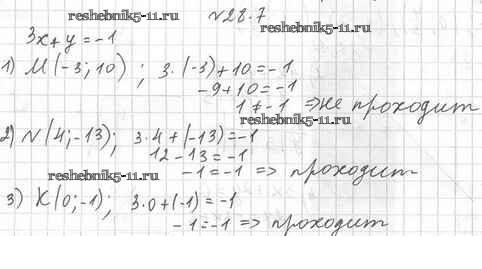 reshebnik5-11.ru
№28.7
reshebnik5-11.ru
3x+y=-1
1) M(-3; 10) ; 3·(-3)+10=-1
-9+10=-1
1≠-1 ⇒ не проходит
2) N(4;-13); 3·4+(-13)=-1
12-13=-1
reshebnik5-11.ru
-1=-1 => проходит
3) K(0;-1); 3·0+(-1)=-1
-1=-1 => проходит